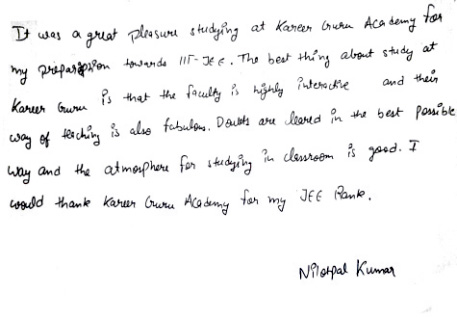 It was a great pleasure studying at Kareer Guru Academy for
my preparation towards IIT-JEE. The best thing about study at
Kareer Guru is that the faculty is highly interactive and their
way of teaching is also fabulous. Doubts are cleared in the best possible
way and the atmosphere for studying in classroom is good. I
would thank Kareer Guru Academy for my JEE Rank.
Nilotpal Kumar